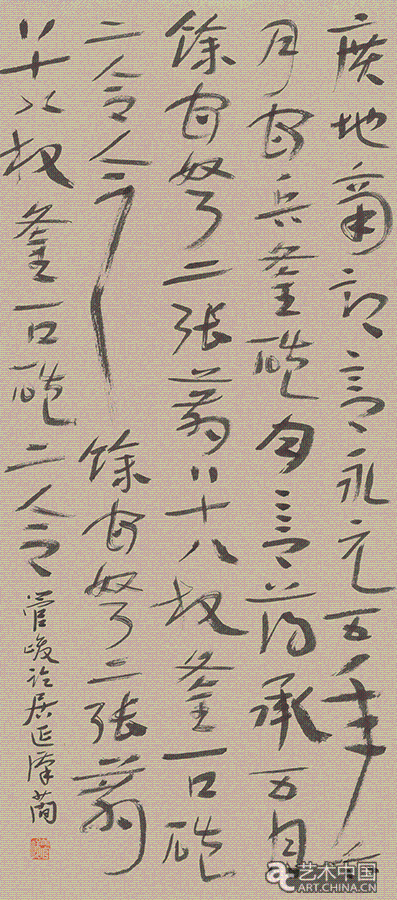 廣地南部言永元五年六
月官兵釜磑月言簿承五月
餘官弩二張箭八十八枚釜一口磑
二合今餘官弩二張箭
八十八枚釜一口磑二合
管峻臨居延漢簡
艺术中国
ART.CHINA.CN